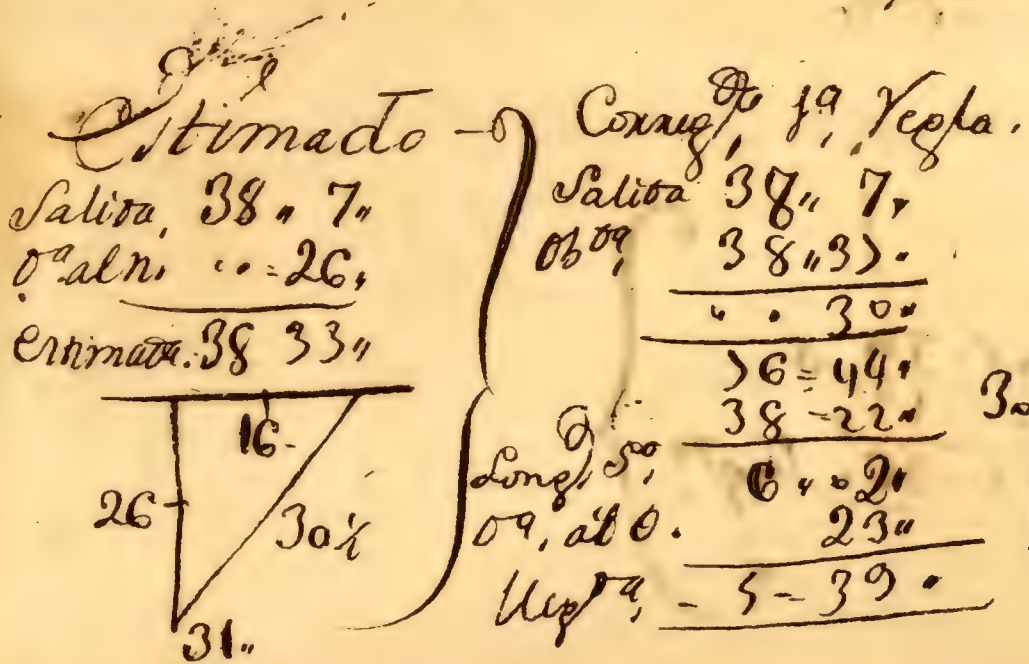 Estimado
Salida, 38 „ 7„
Da al n. „ = 26„
Estimada. 38 33„
16
26
30½
31„
Correg.to 1a, Regla.
Salida 38„ 7„
Obda, 38„ 37„
„ „ 30„
76 = 44„
38 = 22„
3
Long, Sa, 6 „ „ 2„
Da, al O. 23„
Lleg.da, - 5 - 39„